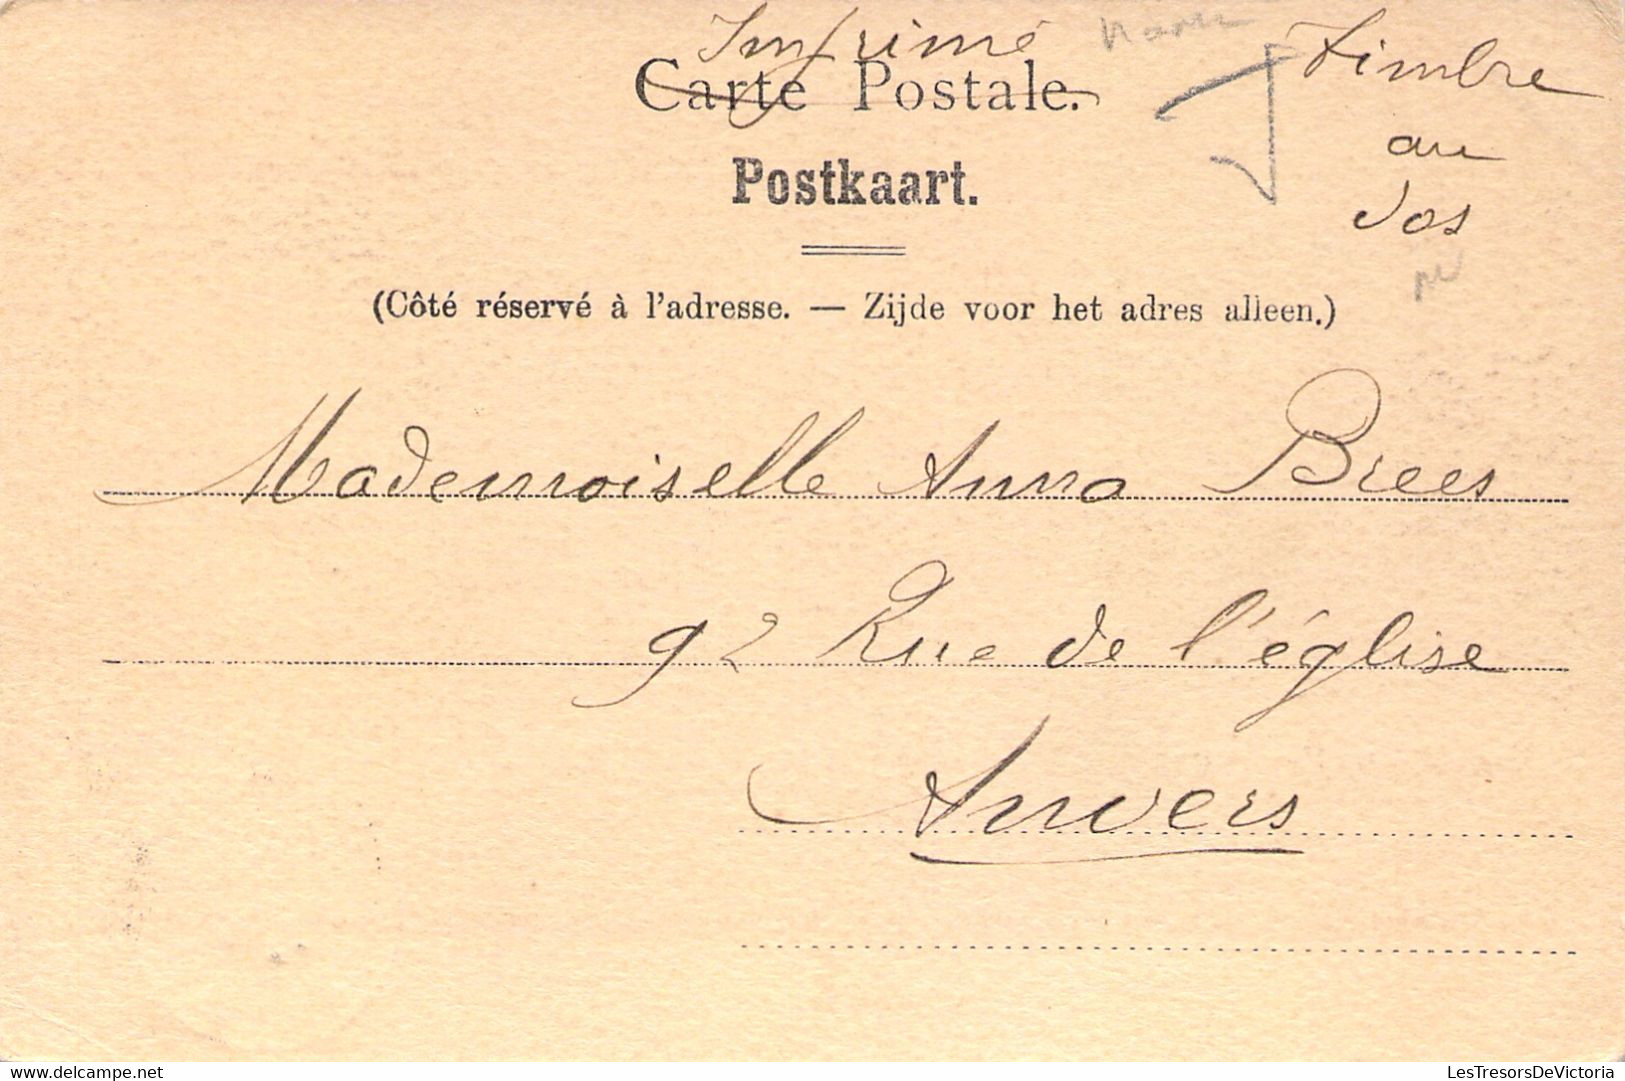 Imprimé
Carte Postale.
Timbre
au
dos
Postkaart.
(Côté réservé à l'adresse. — Zijde voor het adres alleen.)
Mademoiselle Anna Brees
92 Rue de l'église
Anvers
delcampe.net
LesTresorsDeVictoria